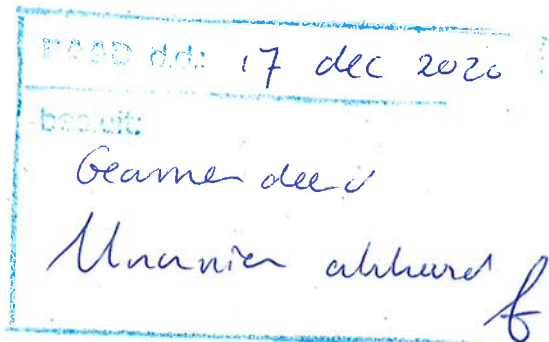 RAAD d.d.: 17 dec 2020
besluit:
Geamendeerd
Unaniem akkoord